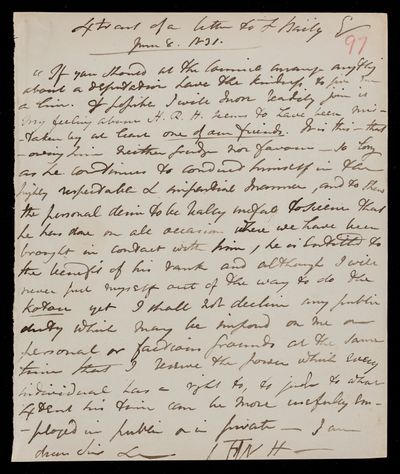 Extract of a letter to F Baily Esq
June 8. 1831.
97
"If you should at the Council arrange anything
about a deputation have the kindness to give me
a line. If possible I will most readily join it
my feeling about H.R.H. seems to have been mis-
-taken by at least one of our friends. It is this - that
-owing him neither grudge nor favour - so long
as he continues to conduct himself in the
highly respectable & impartial manner, and to shew
the personal desire to be really useful to science that
he has done on all occasions where we have been
brought in contact with him, he is entitled to
the benefit of his rank and although I will
never put myself out of the way to do the
Kotou yet I shall not decline any public
duty which may be imposed on me on
personal or factious grounds at the same
time that I reserve the power which every
individual has a right to, to judge to what
extent his time can be more usefully em-
-ployed in public or in private - I am
dear Sir &